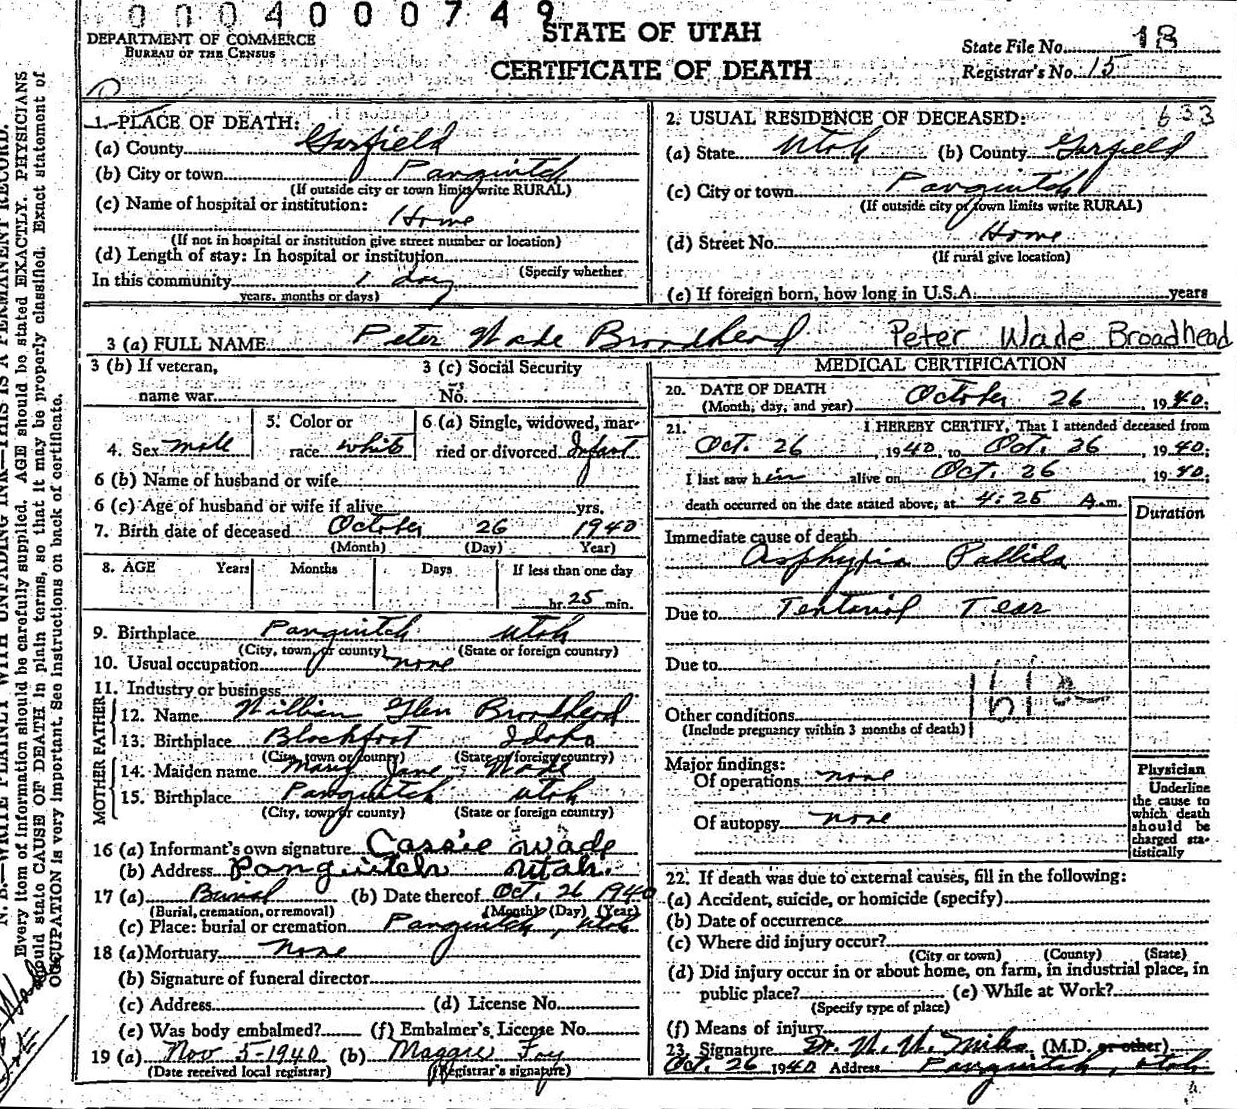 0004000749
DEPARTMENT OF COMMERCE
BUREAU OF THE CENSUS
STATE OF UTAH
CERTIFICATE OF DEATH
State File No. 18
Registrar's No. 15
633
1. PLACE OF DEATH:
(a) County Garfield
(b) City or town Panguitch
(If outside city or town limits write RURAL)
(c) Name of hospital or institution:
Home
(If not in hospital or institution give street number or location)
(d) Length of stay: In hospital or institution
(Specify whether
In this community 1 day
years, months or days)
2. USUAL RESIDENCE OF DECEASED:
(a) State Utah (b) County Garfield
(c) City or town Panguitch
(If outside city or town limits write RURAL)
(d) Street No. Home
(If rural give location)
(e) If foreign born, how long in U.S.A. years
3 (a) FULL NAME Peter Wade Broadhead Peter Wade Broadhead
3 (b) If veteran,
name war
3 (c) Social Security
No.
4. Sex male
5. Color or
race white
6 (a) Single, widowed, mar-
ried or divorced Infant
6 (b) Name of husband or wife
6 (c) Age of husband or wife if alive yrs.
7. Birth date of deceased October 26 1940
(Month) (Day) Year)
8. AGE Years Months Days If less than one day
hr. 25 min.
9. Birthplace Panguitch Utah
(City, town, or county) (State or foreign country)
10. Usual occupation none
11. Industry or business
FATHER
12. Name William Glen Broadhead
13. Birthplace Blackfoot Idaho
(City, town or county) (State or foreign country)
MOTHER
14. Maiden name Mary Jane Wade
15. Birthplace Panguitch Utah
(City, town or county) (State or foreign country)
16 (a) Informant's own signature Cassie Wade
(b) Address Panguitch Utah.
17 (a) Burial (b) Date thereof Oct. 26 1940
(Burial, cremation, or removal) (Month) (Day) (Year)
(c) Place: burial or cremation Panguitch, Utah
18 (a) Mortuary None
(b) Signature of funeral director
(c) Address (d) License No.
(e) Was body embalmed? (f) Embalmer's License No.
19 (a) Nov 5-1940 (b) Maggie Foy
(Date received local registrar) (Registrar's signature)
MEDICAL CERTIFICATION
20. DATE OF DEATH
(Month, day, and year) October 26, 1940;
21. I HEREBY CERTIFY, That I attended deceased from
Oct. 26, 1940, to Oct. 26, 1940;
I last saw him alive on Oct. 26 1940;
death occurred on the date stated above, at 4:25 A.m.
Duration
Immediate cause of death
Asphyxia Pallida
Due to Tentorial Tear
Due to
161a
Other conditions
(Include pregnancy within 3 months of death)
Major findings:
Of operations none
Of autopsy none
Physician
Underline
the cause to
which death
should be
charged sta-
tistically
22. If death was due to external causes, fill in the following:
(a) Accident, suicide, or homicide (specify)
(b) Date of occurrence
(c) Where did injury occur?
(City or town) (County) (State)
(d) Did injury occur in or about home, on farm, in industrial place, in
public place? (e) While at Work?
(Specify type of place)
(f) Means of injury
23. Signature Dr. (M.D. or other)
Oct. 26 1940 Address Panguitch, Utah
N. B.—WRITE PLAINLY WITH UNFADING INK—THIS IS A PERMANENT RECORD.
Every item of information should be carefully supplied. AGE should be stated EXACTLY. PHYSICIANS
should state CAUSE OF DEATH in plain terms, so that it may be properly classified. Exact statement of
OCCUPATION is very important. See instructions on back of certificate.